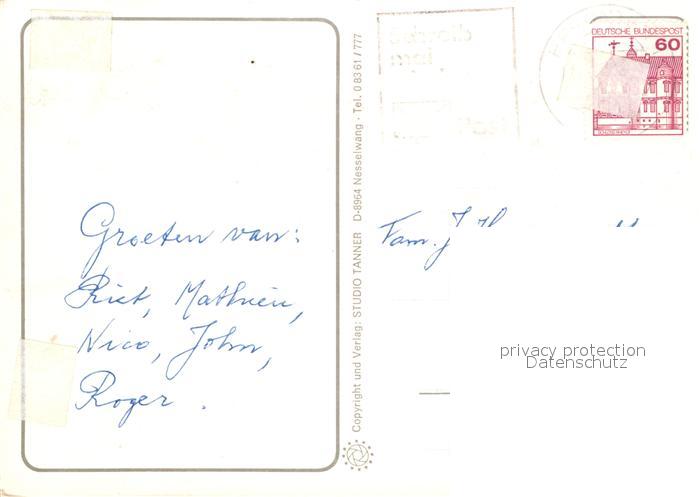 Groeten van:
Riet, Mathieu,
Nico, John,
Roger.
Copyright und Verlag: STUDIO TANNER D-8964 Nesselwang · Tel. 0 83 61 / 777
Schreib
mal
DEUTSCHE BUNDESPOST
60
Fam.
privacy protection
Datenschutz